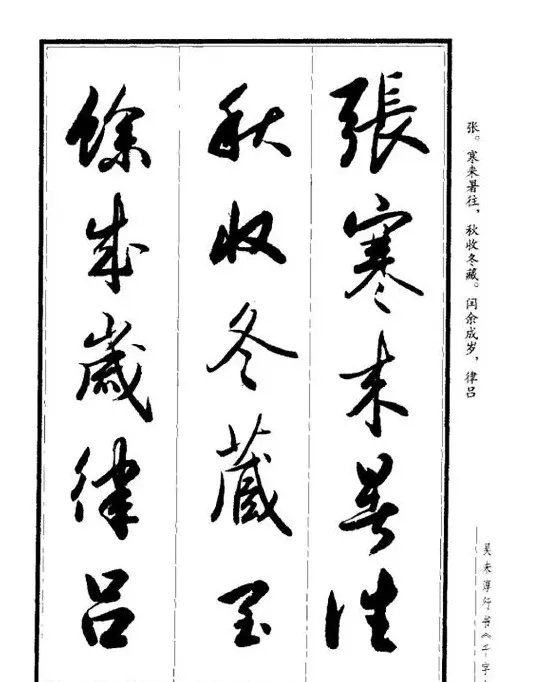 張寒来暑往
秋收冬藏閏
餘成歲律吕
张。寒来暑往，秋收冬藏。闰余成岁，律吕
吴未淳行书《千字